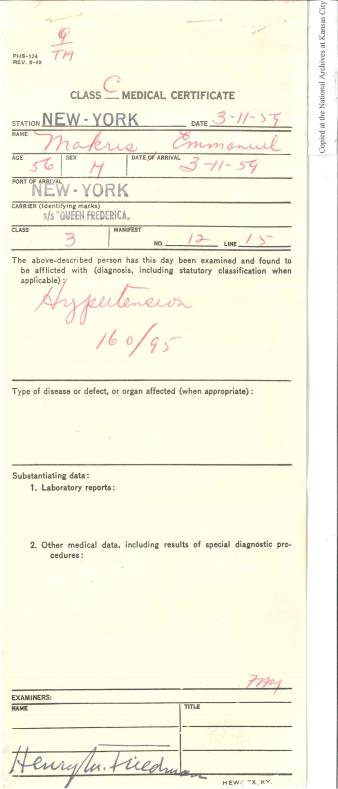 PHS-124
REV. 8-49
TH
CLASS C MEDICAL CERTIFICATE
STATION NEW-YORK DATE 3-11-59
NAME
Makris Emmanuel
AGE SEX DATE OF ARRIVAL
56 M 3-11-59
PORT OF ARRIVAL
NEW-YORK
CARRIER (Identifying marks)
s/s "QUEEN FREDERICA"
CLASS MANIFEST
3 NO. 12 LINE 15
The above-described person has this day been examined and found to
be afflicted with (diagnosis, including statutory classification when
applicable):
Hypertension
160/95
Type of disease or defect, or organ affected (when appropriate):
Substantiating data:
1. Laboratory reports:
2. Other medical data, including results of special diagnostic pro-
cedures:
EXAMINERS:
NAME TITLE
Henry M. Friedman
HEW
KY.
Copied at the National Archives at Kansas City